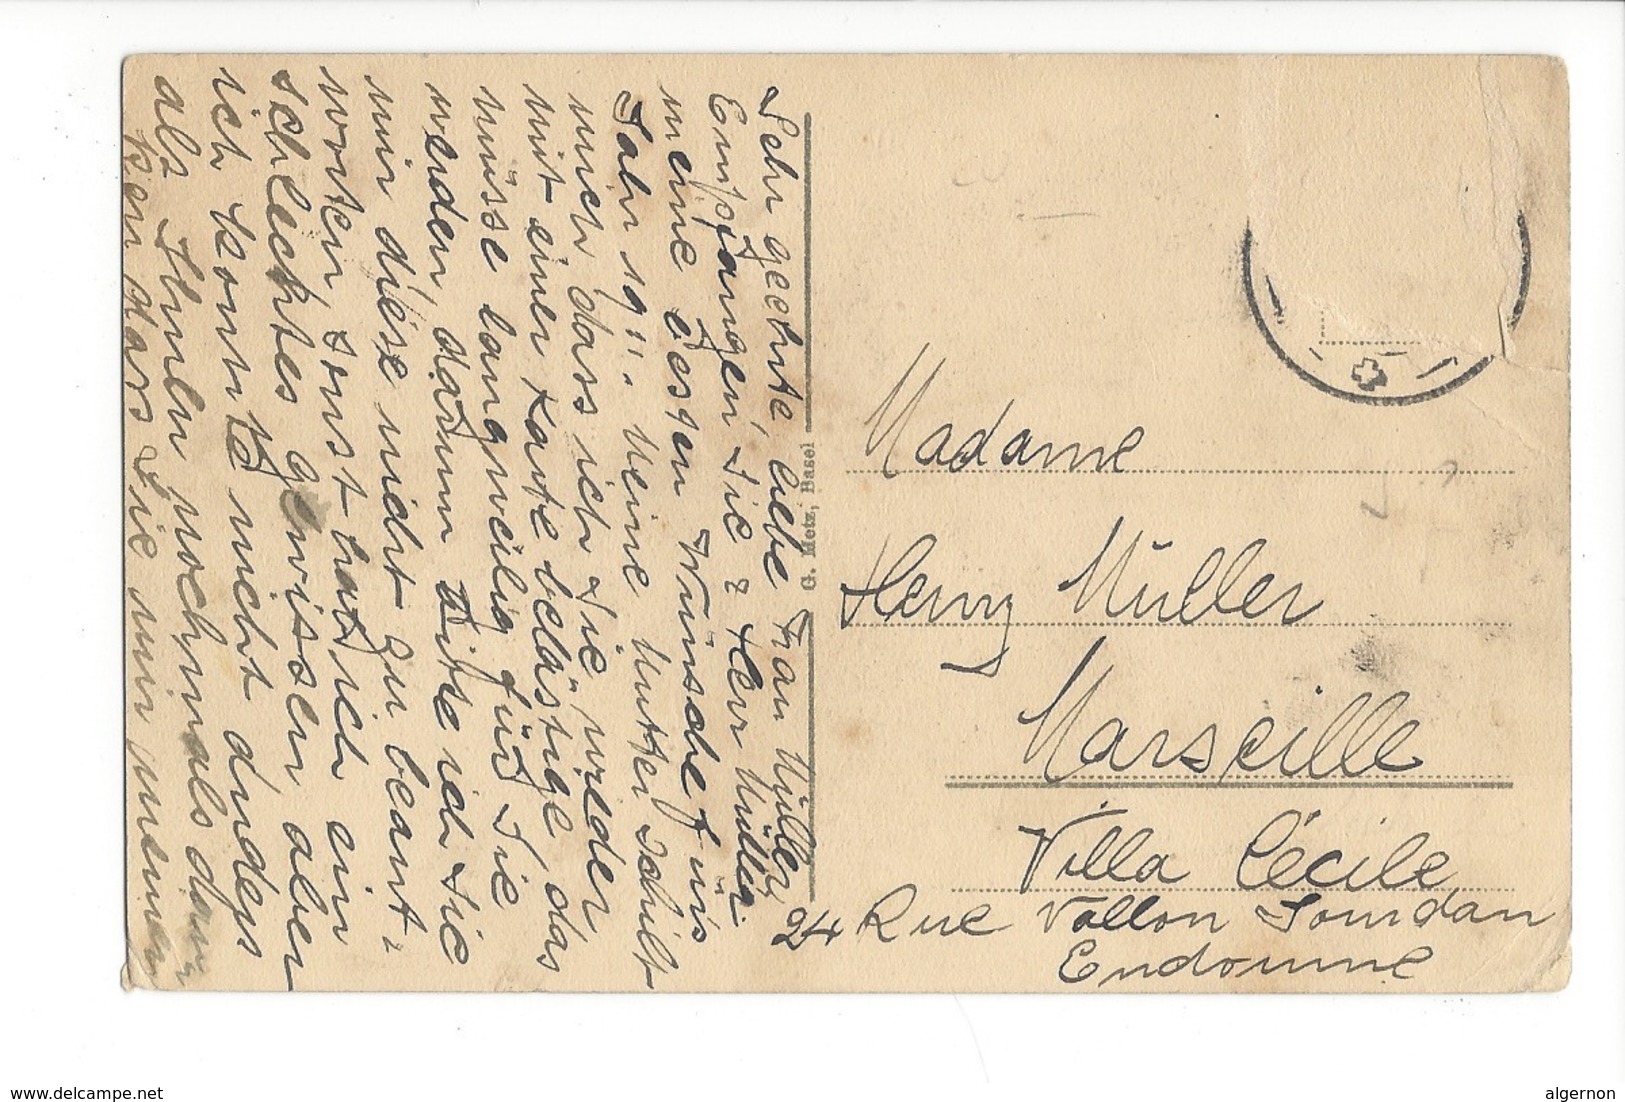 Sehr geehrte liebe Frau Müller
Empfangen Sie & Herr Müller
meine besten Wünsche fürs
Jahr 1911. Meine Mutter schilt
mich dass ich Sie wieder
mit einer Karte belästige das
müsse langweilig für Sie
werden, darum bitte ich Sie
mir diese nicht zu beant-
worten sonst hat ich ein
schlechtes gewissen aber
ich konnte nicht anders
als Ihnen nochmals dan-
ken dass Sie mir meinen
G. Metz, Basel
Madame
Henry Müller
Marseille
Villa Cécile
24 Rue Vallon Jourdan
Endoume
www.delcampe.net
algernon